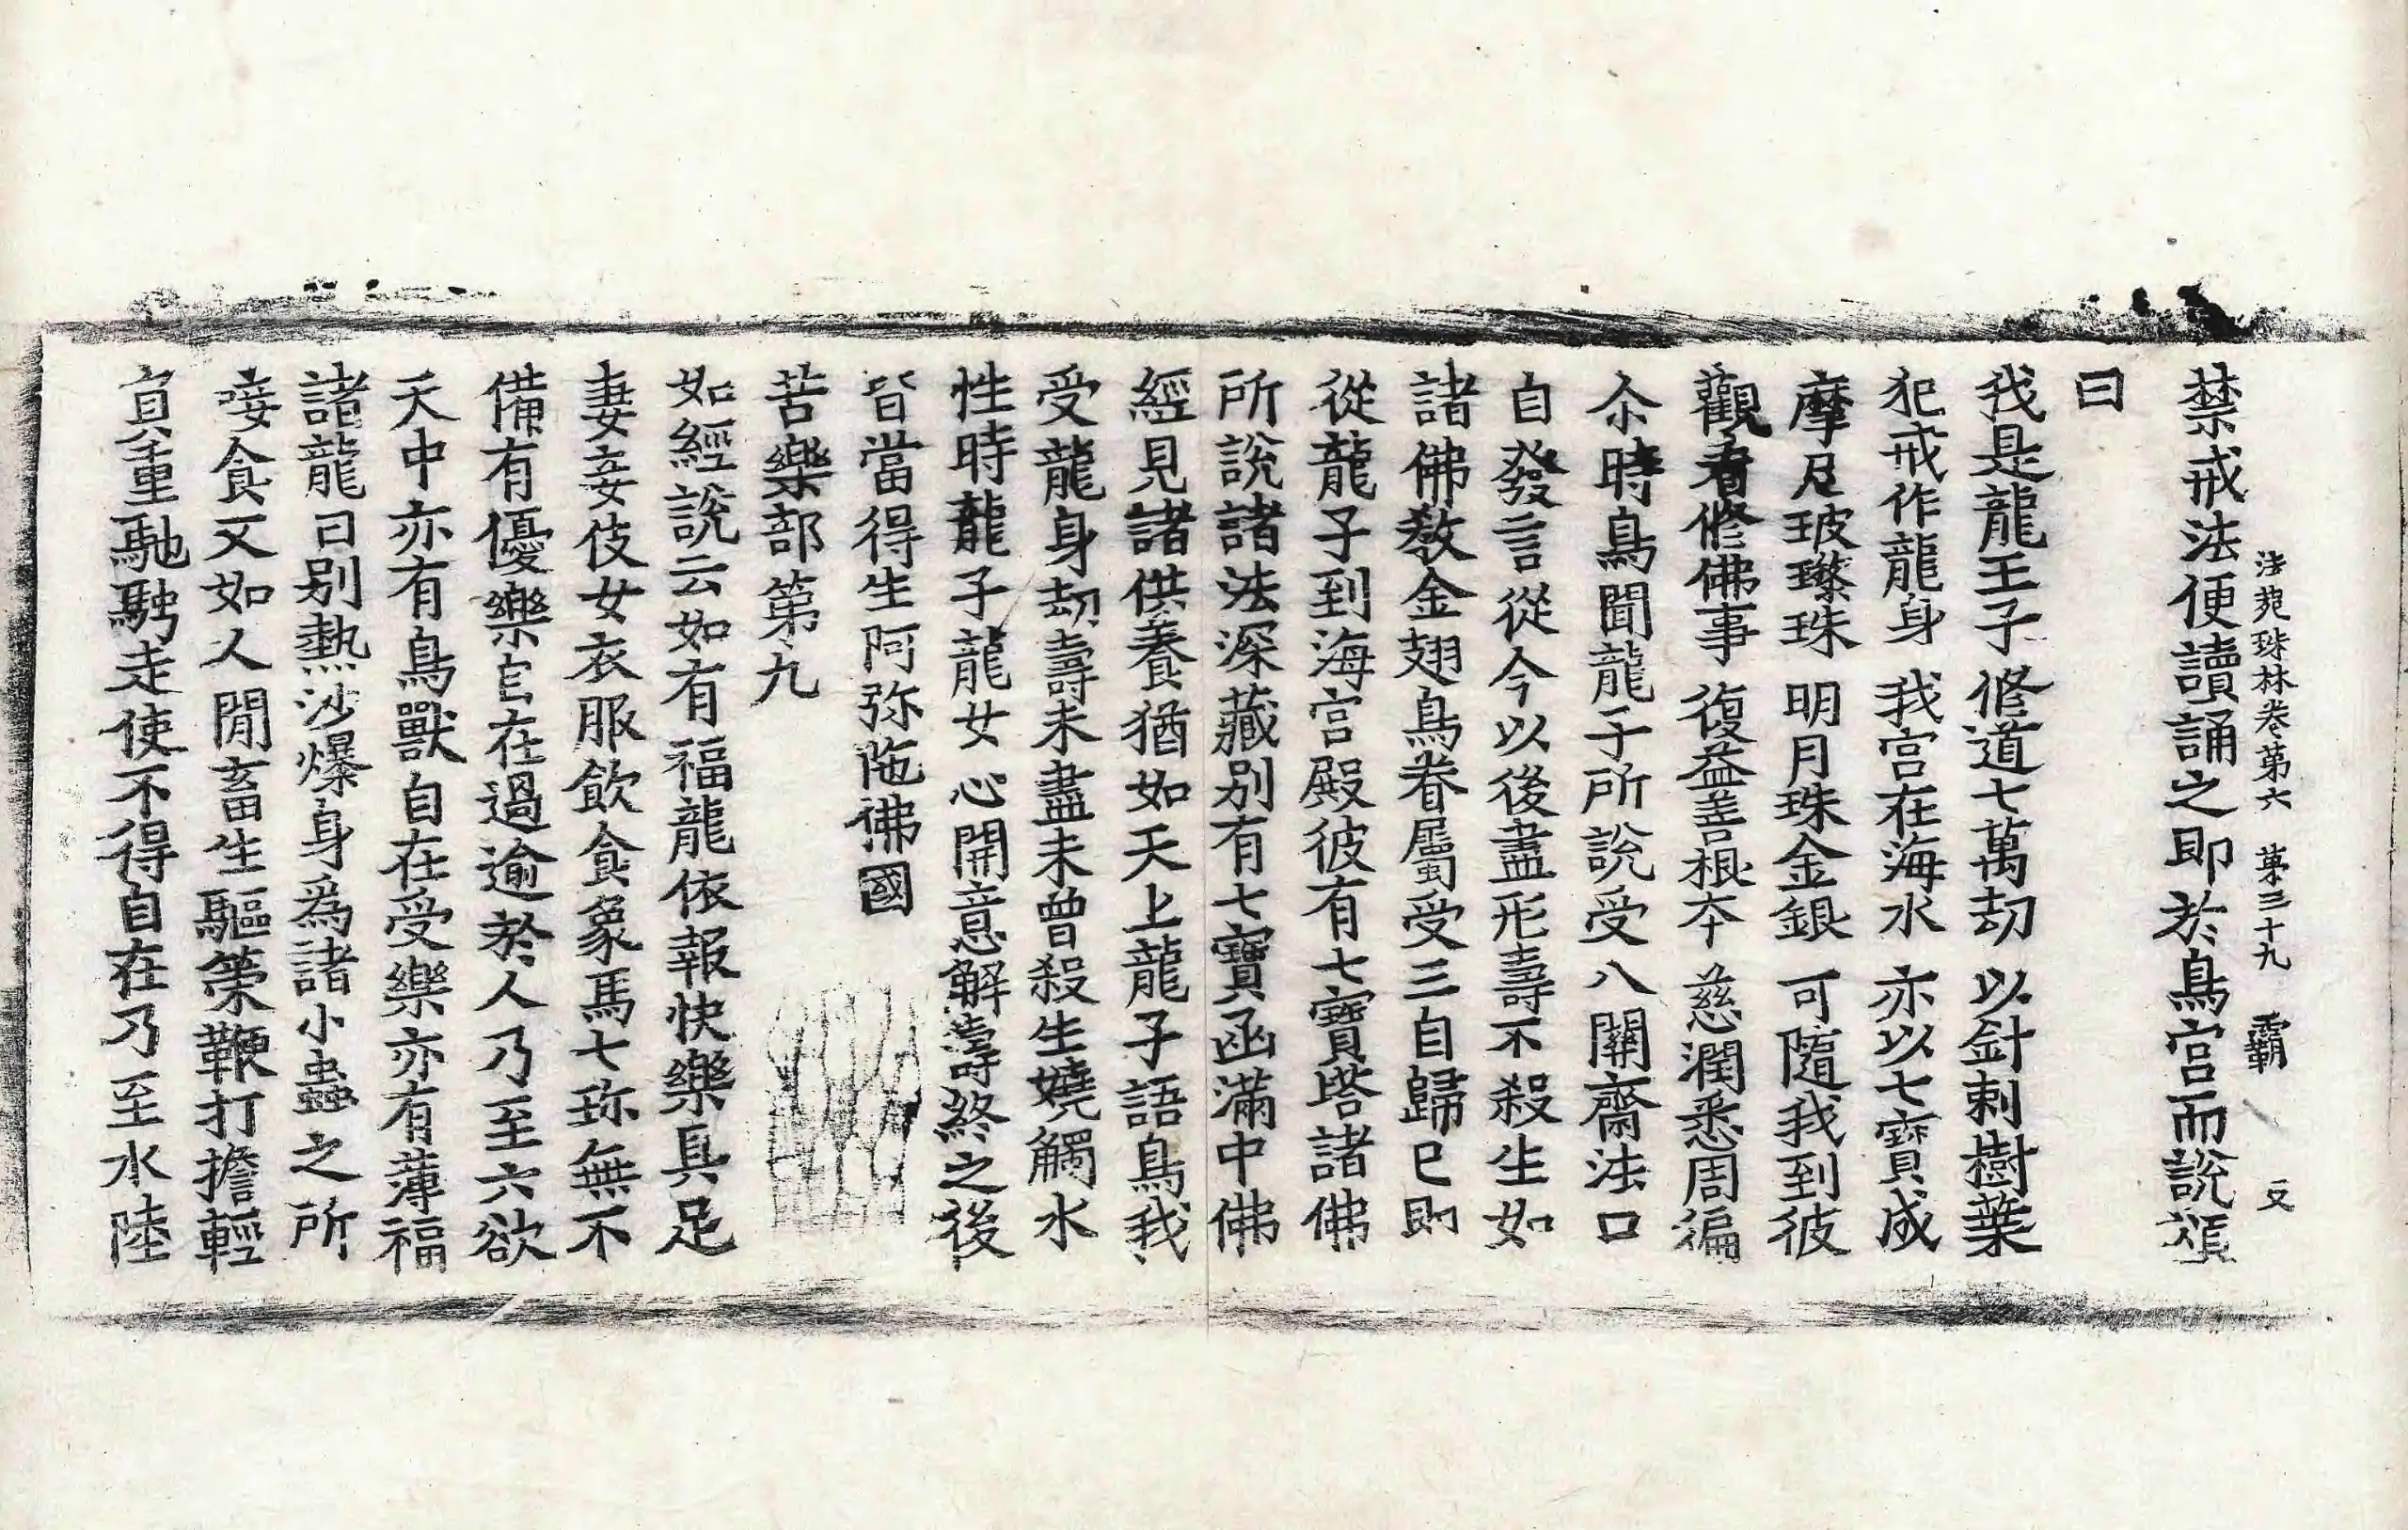 法苑珠林卷第六 第三十九 霸 文
禁戒法便讀誦之即於鳥宮而說頌
曰
我是龍王子 修道七萬劫 以針刺樹葉
犯戒作龍身 我宮在海水 亦以七寶成
摩尼玻瓈珠 明月珠金銀 可隨我到彼
觀看修佛事 復益善根本 慈潤悉周徧
尒時鳥聞龍子所說受八關齋法口
自發言從今以後盡形壽不殺生如
諸佛教金翅鳥眷屬受三自歸已則
從龍子到海宮殿彼有七寶塔諸佛
所說諸法深藏別有七寶函滿中佛
經見諸供養猶如天上龍子語鳥我
受龍身劫壽未盡未曾殺生嬈觸水
性時龍子龍女心開意解壽終之後
皆當得生阿弥陁佛國
苦樂部第九
如經說云如有福龍依報快樂具足
妻妾伎女衣服飲食象馬七珎無不
備有優樂自在過逾於人乃至六欲
天中亦有鳥獸自在受樂亦有薄福
諸龍日別熱沙爆身為諸小蟲之所
唼食又如人閒畜生驅策鞭打擔輕
負重馳騁走使不得自在乃至水陸